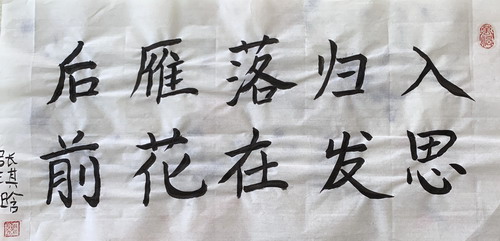 入归落雁后
思发在花前
张其晗